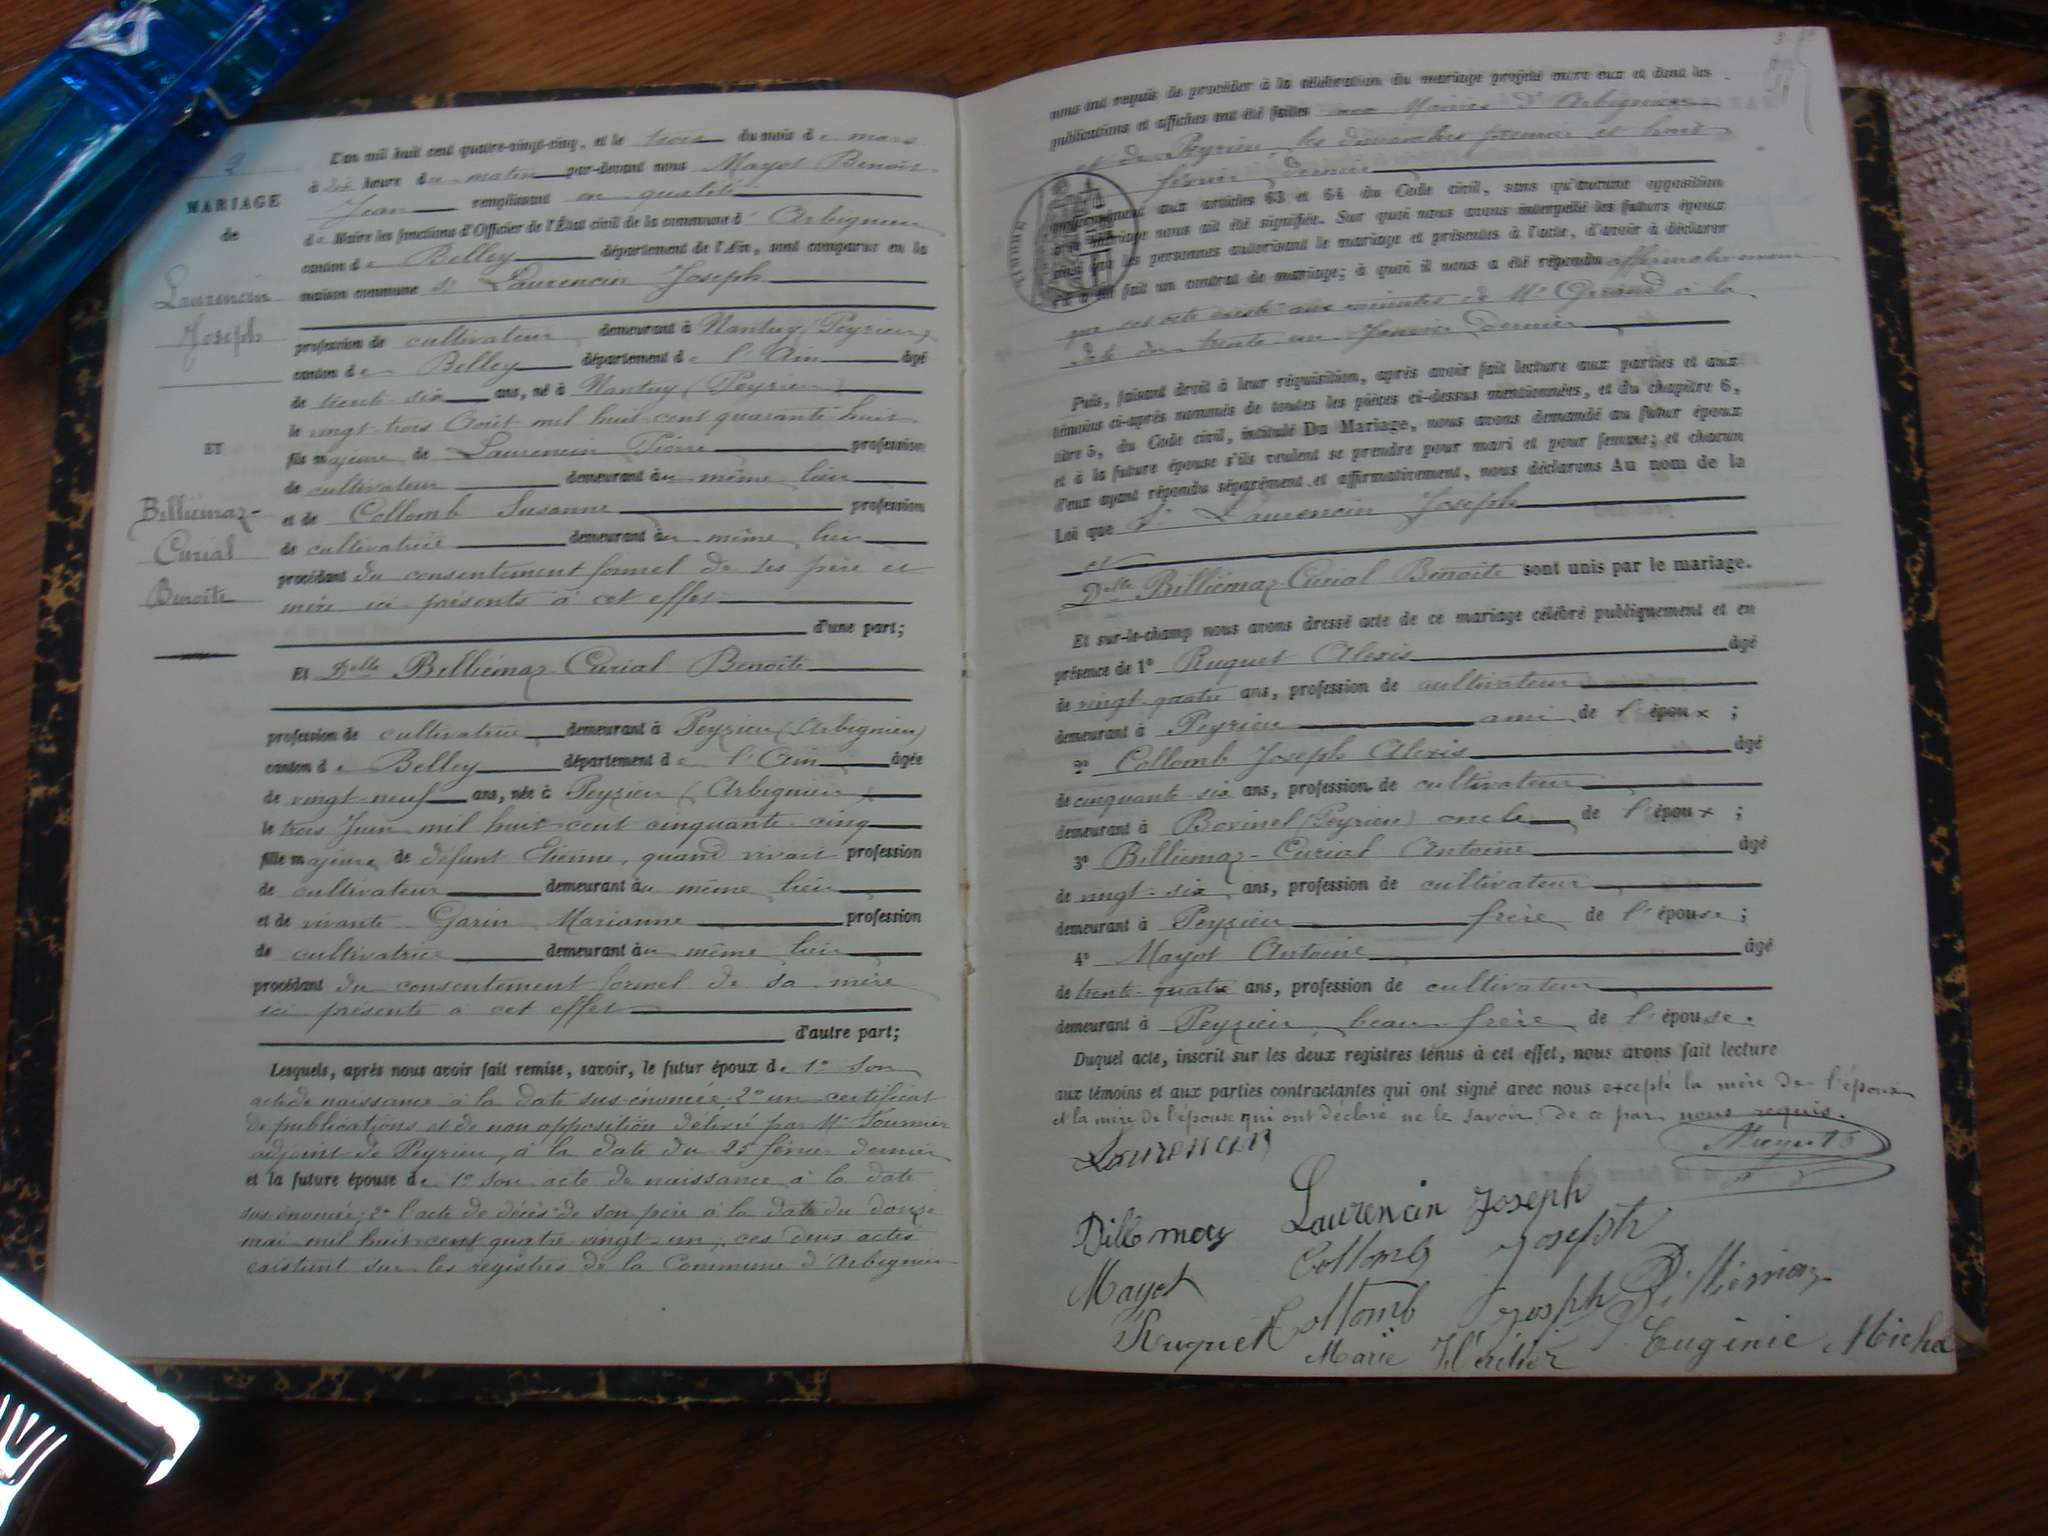 2
MARIAGE
de
Laurencin
Joseph
ET
Billiémaz-
Curial
Benoîte
L'an mil huit cent quatre-vingt-cinq, et le trois du mois de mars
à dix heure du matin par-devant nous Mayot Benoît
Jean remplissant en qualité
de Maire les fonctions d'Officier de l'État civil de la commune d'Arbignieu
canton de Belley département de l'Ain, sont comparus en la
maison commune Sr Laurencin Joseph
profession de cultivateur demeurant à Nantuy (Peyrieu)
canton de Belley département de l'Ain âgé
de trente-six ans, né à Nantuy (Peyrieu)
le vingt-trois Août mil huit cent quarante huit
fils majeur de Laurencin Pierre profession
de cultivateur demeurant au même lieu
et de Collomb Susanne profession
de cultivatrice demeurant au même lieu
procédant du consentement formel de ses père et
mère ici présents à cet effet
d'une part;
Et Delle Billiémaz-Curial Benoîte
profession de cultivatrice demeurant à Peyzieu (Arbignieu)
canton de Belley département de l'Ain âgée
de vingt-neuf ans, née à Peyzieu (Arbignieu)
le trois Juin mil huit cent cinquante-cinq
fille majeure de défunt Etienne, quand vivait profession
de cultivateur demeurant au même lieu
et de vivante Garin Marianne profession
de cultivatrice demeurant au même lieu
procédant du consentement formel de sa mère
ici présente à cet effet
d'autre part;
Lesquels, après nous avoir fait remise, savoir, le futur époux de 1° son
acte de naissance à la date sus-énoncée 2° un certificat
de publications et de non opposition délivré par Mr Fournier
adjoint de Peyrieu, à la date du 25 février dernier
et la future épouse de 1° son acte de naissance à la date
sus-énoncée; 2° l'acte de décès de son père à la date du douze
mai mil huit cent quatre vingt-un; ces deux actes
existent sur les registres de la Commune d'Arbignieu
nous ont requis de procéder à la célébration du mariage projeté entre eux et dont les
publications et affiches ont été faites aux Mairies d'Arbignieu
et de Peyrieu les dimanches premier et huit
février dernier
conformément aux articles 63 et 64 du Code civil, sans qu'aucune opposition
à ce mariage nous ait été signifiée. Sur quoi nous avons interpellé les futurs époux
ainsi que les personnes autorisant le mariage et présentes à l'acte, d'avoir à déclarer
s'il a été fait un contrat de mariage; à quoi il nous a été répondu affirmativement
que cet acte existe aux minutes de Me à la
date du trente-un Janvier dernier
Puis, faisant droit à leur réquisition, après avoir fait lecture aux parties et aux
témoins ci-après nommés de toutes les pièces ci-dessus mentionnées, et du chapitre 6,
titre 5, du Code civil, intitulé Du Mariage, nous avons demandé au futur époux
et à la future épouse s'ils veulent se prendre pour mari et pour femme; et chacun
d'eux ayant répondu séparément et affirmativement, nous déclarons Au nom de la
Loi que Sr Laurencin Joseph
et
Delle Billiémaz-Curial Benoîte sont unis par le mariage.
Et sur-le-champ nous avons dressé acte de ce mariage célébré publiquement et en
présence de 1° Ruguet Alexis âgé
de vingt-quatre ans, profession de cultivateur
demeurant à Peyrieu ami de l'époux;
2° Collomb Joseph Alexis âgé
de cinquante-six ans, profession de cultivateur
demeurant à Bovinel (Peyrieu) oncle de l'époux;
3° Billiemaz-Curial Antoine âgé
de vingt-six ans, profession de cultivateur
demeurant à Peyzieu frère de l'épouse;
4° Mayot Antoine âgé
de trente-quatre ans, profession de cultivateur
demeurant à Peyzieu, beau-frère de l'épouse.
Duquel acte, inscrit sur les deux registres tenus à cet effet, nous avons fait lecture
aux témoins et aux parties contractantes qui ont signé avec nous excepté la mère de l'époux
et la mère de l'épouse qui ont déclaré ne le savoir de ce par nous requis.
Laurencin
Mayot B
Laurencin Joseph
Billemaz
Collomb Joseph
Mayot
Collomb Joseph
Billiémaz
Ruguet
Marie
Eugénie Micha